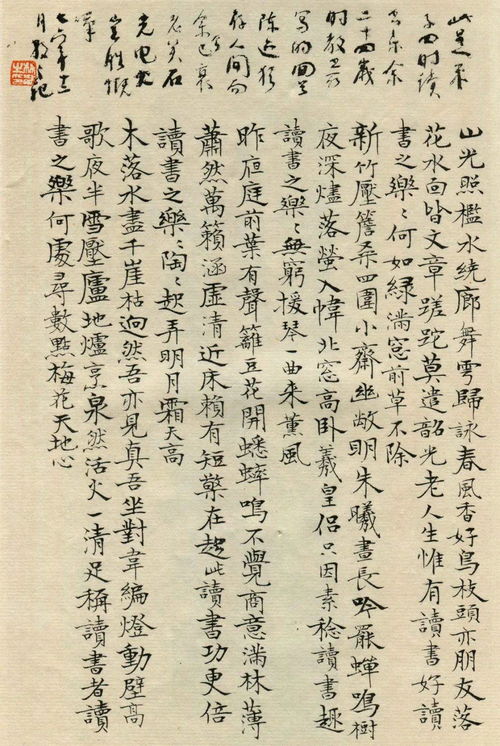 此是朱
子四時讀
書樂余
二十四歲
時教
寫的回
陳迹猶
存人間而
余已衰
老矣石
火電光
豈勝慨
嘆
七六年十二
月記
山光照檻水繞廊舞雩歸詠春風香好鳥枝頭亦朋友落
花水面皆文章蹉跎莫遣韶光老人生惟有讀書好讀
書之樂〻何如綠滿窓前草不除
新竹壓簷桑四圍小齋幽敞明朱曦晝長吟罷蟬鳴樹
夜深燼落螢入幃北窓高卧羲皇侶只因素稔讀書趣
讀書之樂〻無窮援琴一曲来薰風
昨夜庭前葉有聲籬豆花開蟋蟀鳴不覺商意滿林薄
蕭然萬籟涵虛清近床賴有短檠在趁此讀書功更倍
讀書之樂〻陶〻起弄明月霜天高
木落水盡千崖枯迥然吾亦見真吾坐對韋編燈動壁高
歌夜半雪壓廬地爐烹泉然活火一清足稱讀書者讀
書之樂何處尋數點梅花天地心